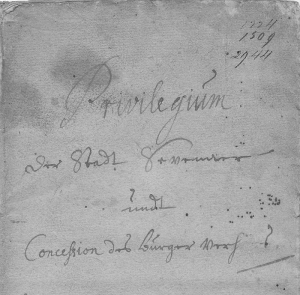 1224
1509
2944
Privilegium
der Stadt Sevenaer
undt
Concession des Bürger